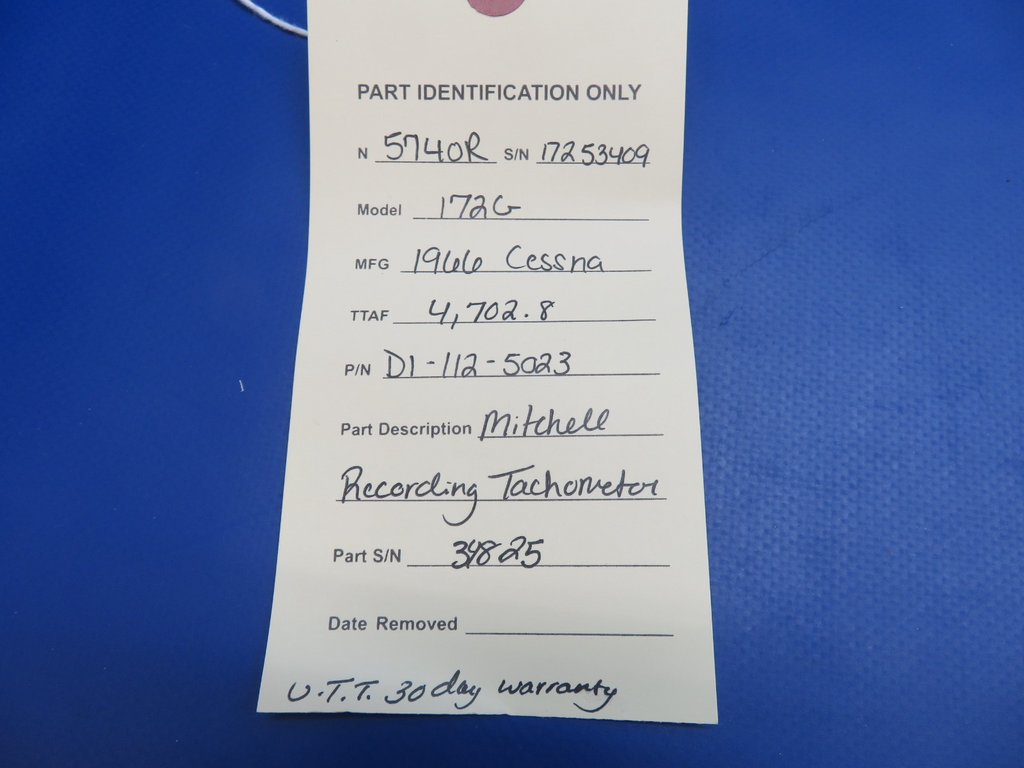 PART IDENTIFICATION ONLY
N 5740R S/N 17253409
Model 172G
MFG 1966 Cessna
TTAF 4,702.8
P/N D1-112-5023
Part Description Mitchell
Recording Tachometer
Part S/N 34825
Date Removed
U.T.T. 30 day warranty